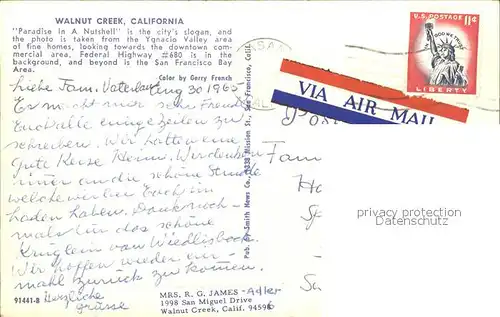 WALNUT CREEK, CALIFORNIA
"Paradise In A Nutshell" is the city's slogan, and
the photo is taken from the Ygnacio Valley area
of fine homes, looking towards the downtown com-
mercial area. Federal Highway #680 is in the
background, and beyond is the San Francisco Bay
Area.
Color by Gerry French
Liebe Fam.
Aug 30 1965
Es macht mir
einige Zeilen zu
schreiben. Wir hatten eine
gute Reise Heim. Wir denken
immer an die schöne Stunde
welche wir bei Euch
haben. Dank noch-
mals für das schöne
Krüglein von Wiedlisbach.
Wir hoffen wieder ein-
mahl zurück zu kommen.
Herzliche
grüsse
91441-B
MRS. R. G. JAMES - Adler
1998 San Miguel Drive
Walnut Creek, Calif. 94596
Pub. by Smith News Co., Mission St., San Francisco, Calif.
U.S. POSTAGE 11¢
IN GOD WE TRUST
LIBERTY
VIA AIR MAIL
Fam
protection
oldthing.com